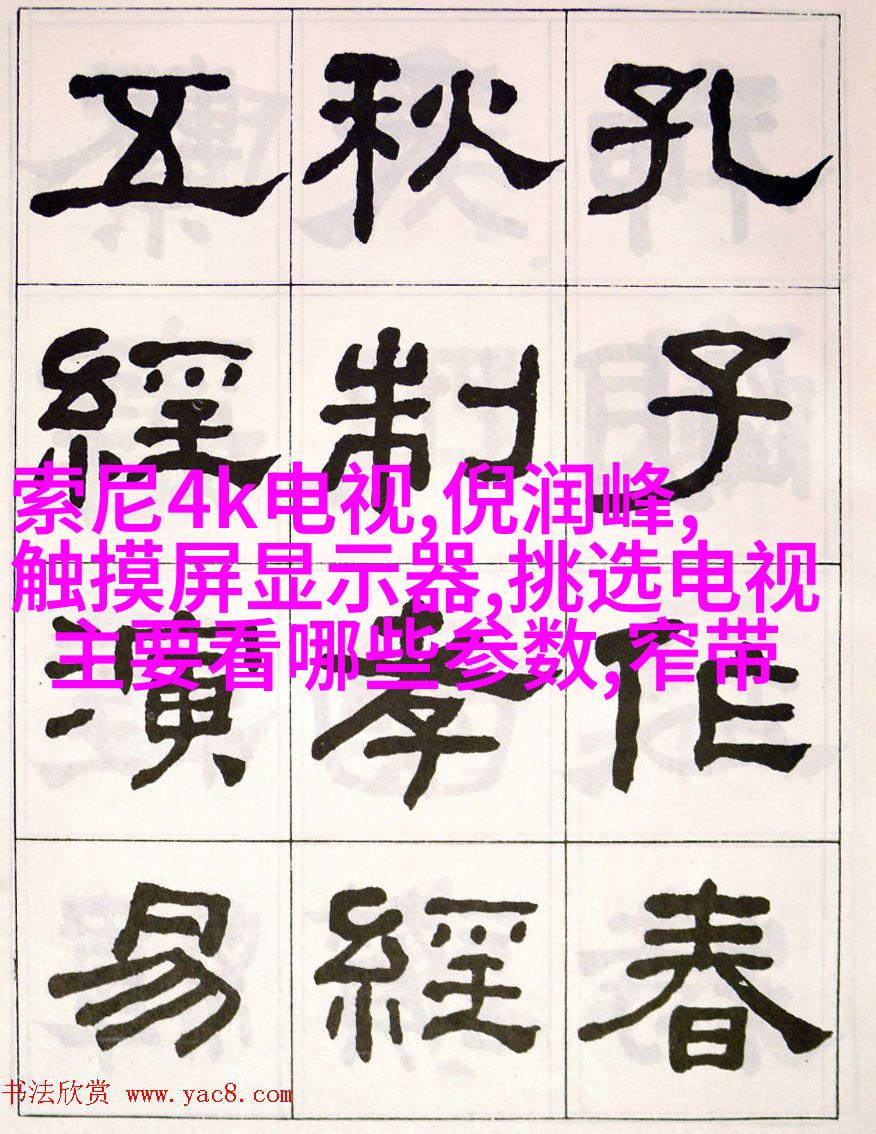 孔子作春
秋制孝經
五經演易
索尼4k电视,倪润峰,
触摸屏显示器,挑选电视
主要看哪些参数,窄带
书法欣赏 www.yac8.com